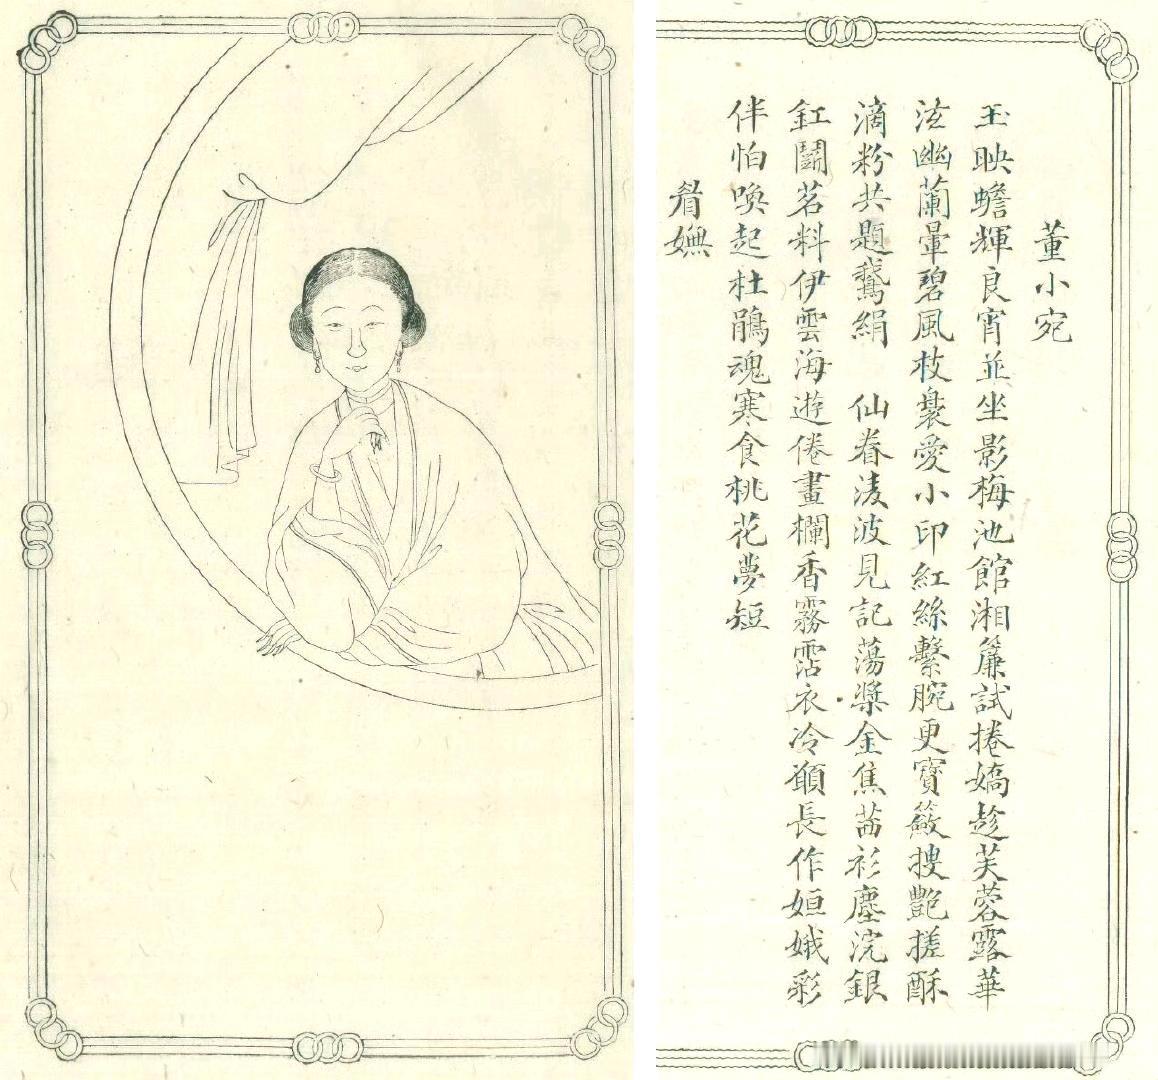 董小宛
玉映蟾輝良宵並坐影梅池館湘簾試捲嬌趁芙蓉露華
泫幽蘭暈碧風枝裊愛小印紅絲繫腕更寶籢搜艷搓酥
滴粉共題鵞絹　仙眷淩波見記蕩槳金焦茜衫塵浣銀
釭鬭茗料伊雲海遊倦畫欄香霧霑衣冷願長作姮娥彩
伴怕喚起杜鵑魂寒食桃花夢短
睂嫵